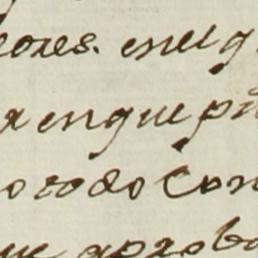 ores. en el q
a en que pa
o todo con
que aprob